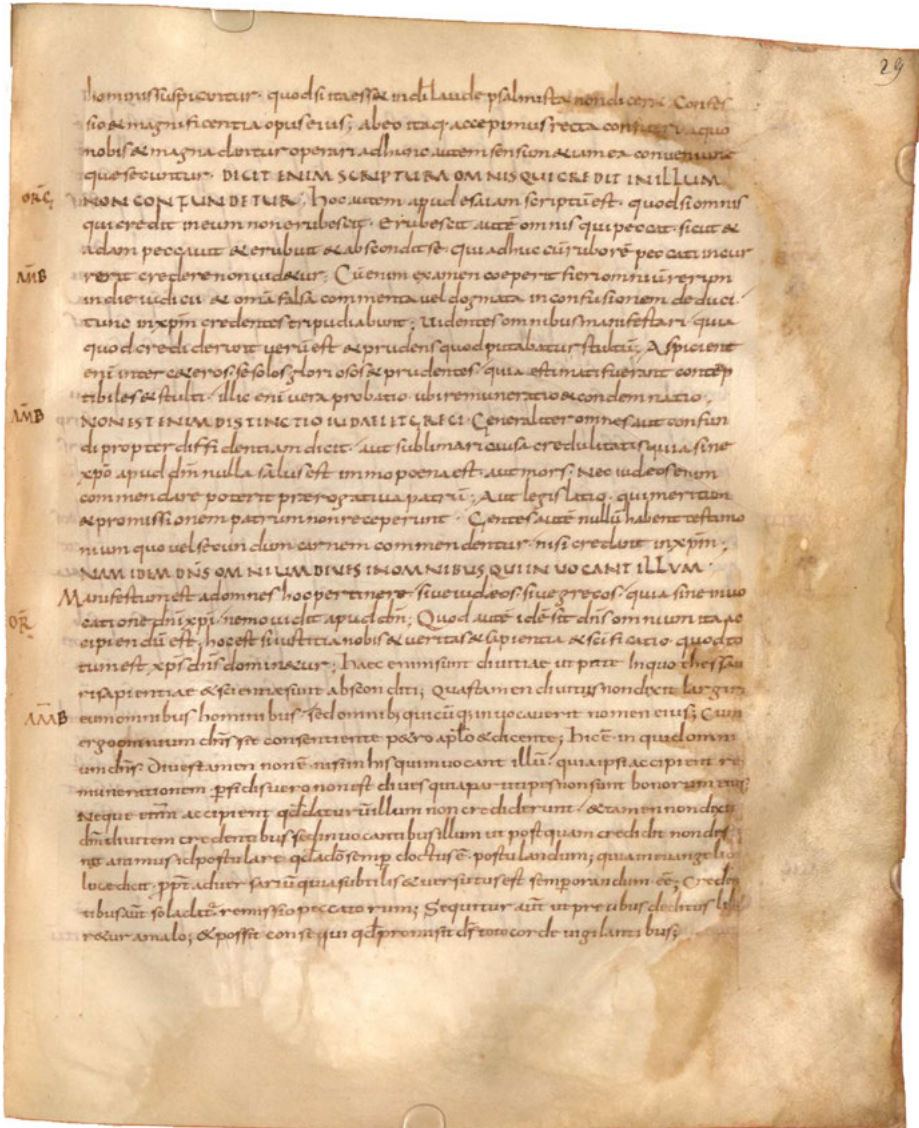 29
hominis suspicantur. quod si ita esset in di laude psalmista non diceret Confes
sio & magnificentia opus eius; ab eo itaq. accepimus recta a quo
nobis & magna dantur operari ad hunc autem sensum & iam ea conveniunt
que secuntur. DICIT ENIM SCRIPTURA OMNIS QUI CREDIT IN ILLUM
ORG NON CONFUNDETUR; hoc autem apud esaiam scriptū est. quod si omnis
qui credit in eum non erubescit. Erubescit autē omnis qui peccat. sicut &
adam peccavit & erubuit & abscondit se. qui adhuc cū ruborē peccati incur
rerit credere non videtur; Cū enim examen coeperit fieri omniū rerum
AMB in die iudicii & omīa falsa commenta vel dogmata in confusionem deduci.
tunc in xpm credentes tripudiabunt; videntes omnibus manifestari quia
quod crediderunt verū est & prudens quod putabatur stultū; Aspicient
eni inter ceteros se solos gloriosos & prudentes. quia estimati fuerant contēp
tibiles & stulti. illic eni vera probatio ubi remuneratio & condemnatio.
AMB NON EST ENIM DISTINCTIO IUDAEI ET GRECI. Generaliter omnes aut confun
di propter diffidentiam dicit. aut sublimari causa credulitatis quia sine
xpo apud dm nulla salus est immo poena est. aut mors; Nec iudeos enim
commendare poterit praerogativa patrū. Aut legislatio. qui meritum
& promissionem patrum non receperunt. Gentes autē nullū habent testimo
nium quo vel secundum carnem commendentur. nisi credant in xpm;
NAM IDEM DNS OMNIUM DIVES IN OMNIBUS QUI INVOCANT ILLUM.
Manifestum est ad omnes hoc pertinere. sive iudeos sive grecos. quia sine invo
OR catione dni xpi. nemo vidit apud dm; Quod autē idē sit dns omnium ita ac
cipiendū est. hoc est si iustitia nobis & veritas & sapientia & scificatio quod to
tum est xps dns dominetur; haec enim sunt divitiae ut puta In quo thesau
ri sapientiae & scientiae sunt absconditi; Quas tamen divitias non dixit largiri
AMB eum omnibus hominibus. sed omnib; quicūq; invocaverit nomen eius; Cum
ergo omnium dns sit consentiente petro aplo & dicente; hic ē inquid omni
um dns. Dives tamen non ē. nisi in his qui invocant illū. quia ipsi accipient re
munerationem. psidis vero non est dives quia participes non sunt bonorum eius
Neque enim accipient qd datur illum non crediderunt. & tamen non dixit
dm divitem credentibus sed invocantibus illum ut postquam credidit non desi
nat animus id postulare qd a do semp doctus ē postulandum; quia in evangelio
luce dicit. ppt adversariū quia subtilis & versutus est semp orandum eē; Creden
tibus aut sola dat remissio peccatorum; Sequitur aut ut precibus deditus libe
retur a malo; & possit consequi qd promisit ds toto corde vigilantibus;